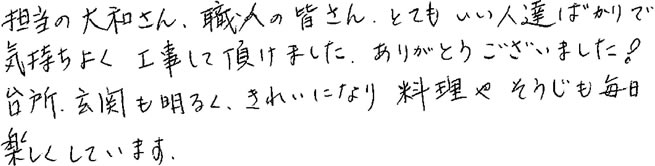 担当の大和さん、職人の皆さん、とてもいい人達ばかりで
気持ちよく工事して頂けました。ありがとうございました!
台所、玄関も明るく、きれいになり料理やそうじも毎日
楽しくしています。